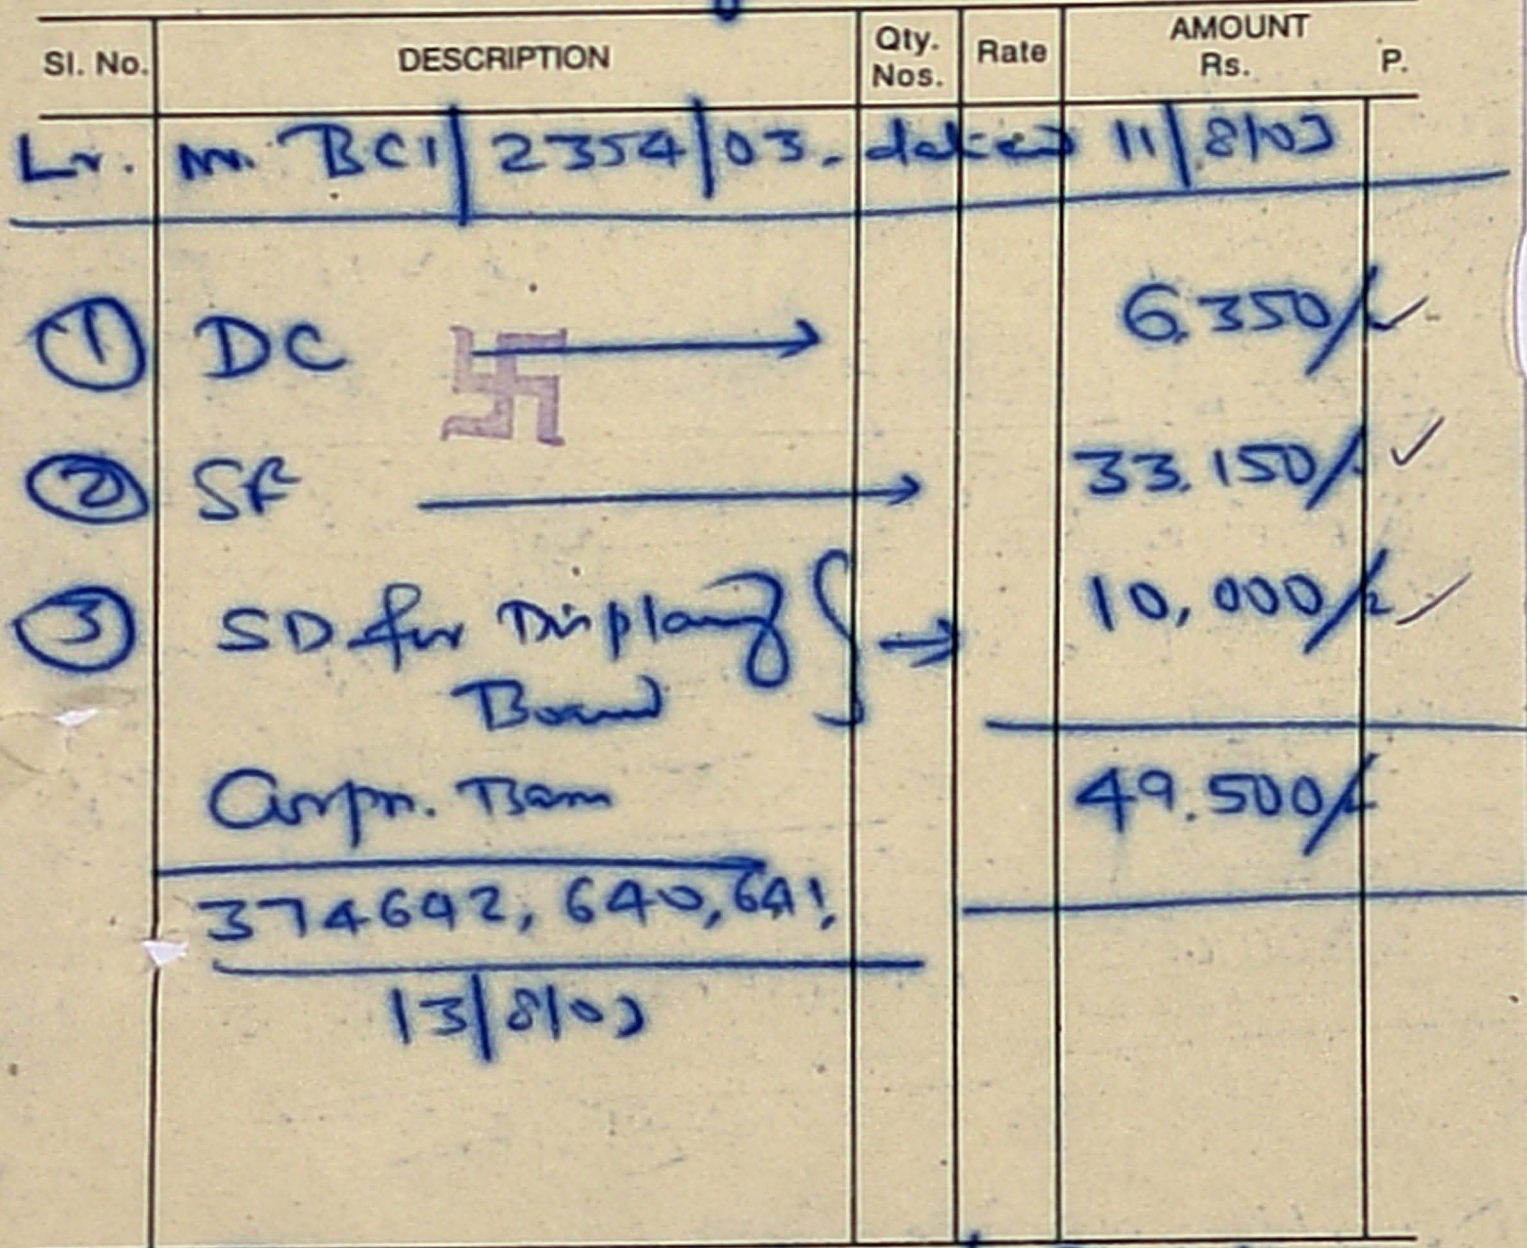 Sl. No. DESCRIPTION Qty. Nos. Rate AMOUNT Rs. P.
Lr. nr. BC1/2354/03. dated 11/8/03
1 DC → 6.350/-
2 SF → 33.150/-
3 SD for Display } → 10,000/-
Board
Corpn. 49.500/-
374642, 640, 641.
13/8/03